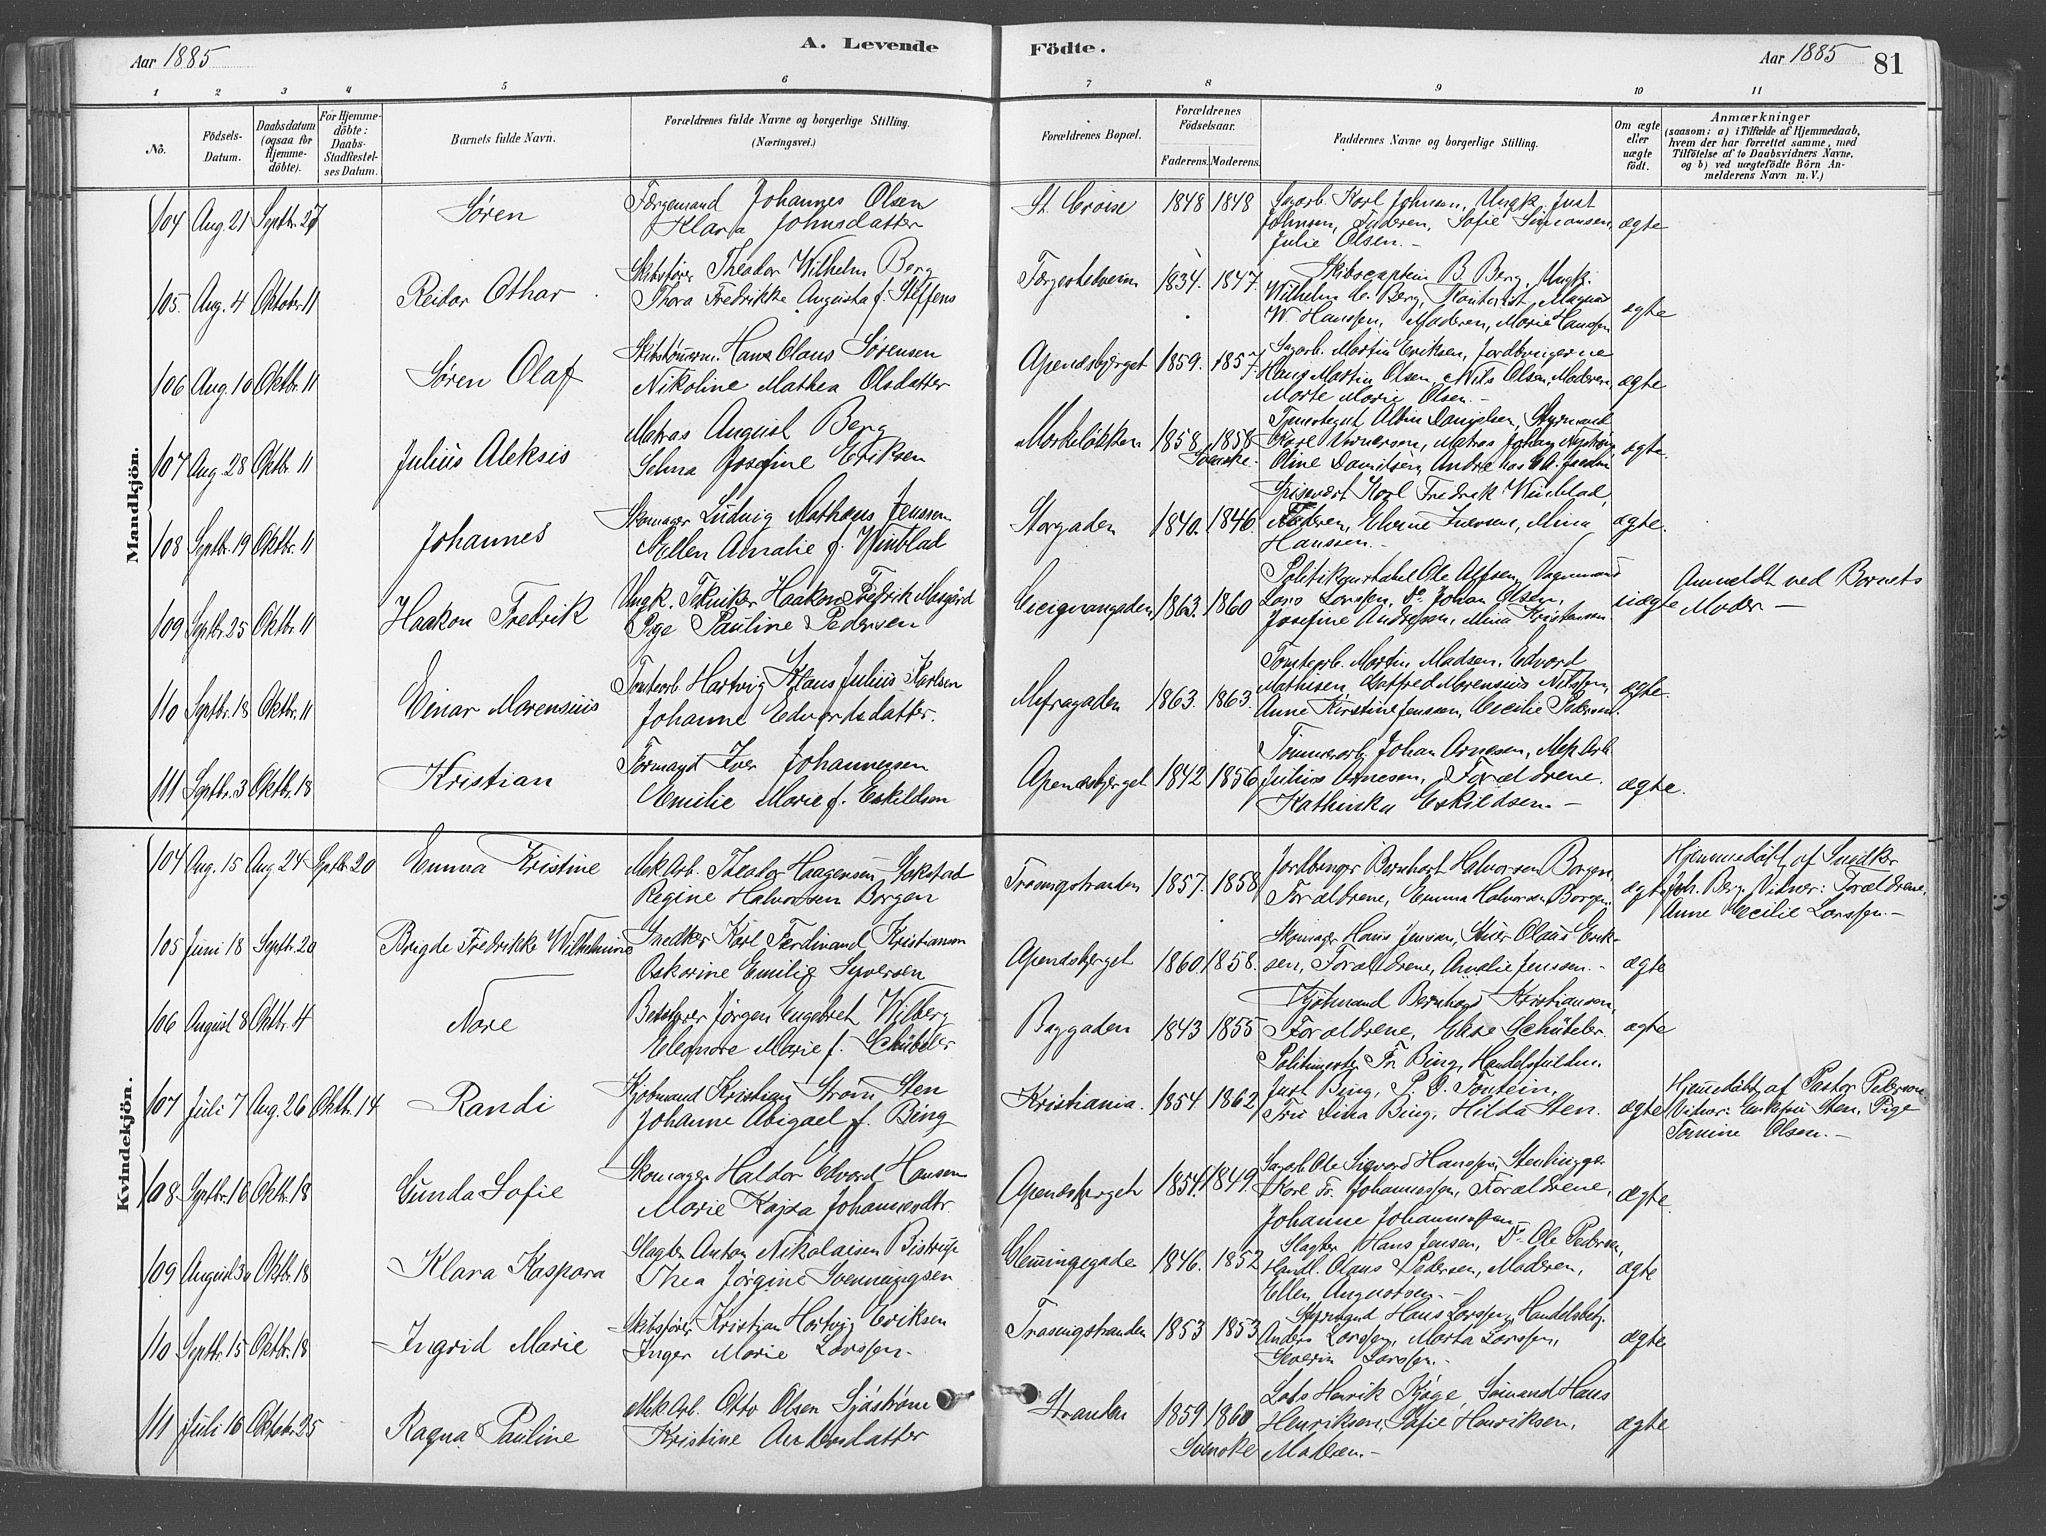 Aar 1885
A. Levende
Födte.
Aar 1885
81
1 2 3 4 5 6 7 8 9 10 11
No.
Födsels-
Datum.
Daabsdatum
(ogsaa for
Hjemme-
döbte).
For Hjemme-
döbte:
Daabs-
Stadfæstel-
ses Datum.
Barnets fulde Navn.
Forældrenes fulde Navne og borgerlige Stilling.
(Næringsvei.)
Forældrenes Bopæl.
Forældrenes
Födselsaar.
Faderens. Moderens.
Faddernes Navne og borgerlige Stilling.
Om ægte
eller
uægte
födt.
Anmærkninger
(saasom: a) i Tilfælde af Hjemmedaab,
hvem der har forrettet samme, med
Tilföielse af to Daabsvidners Navne,
og b) ved uægtefödte Börn An-
melderens Navn m. V.)
Mandkjön.
104 Aug. 21 Septbr. 27 Søren
Færgemand Johannes Olsen
Klara Johnsdatter
St. Croixe 1848 1848
Sagarb. Karl Johnsen, Ungk. Just
Johnsen, Faderen, Sofie Simonsen,
Julie Olsen.-
ægte
105. Aug. 4 Oktobr. 11 Reidar Othar
Skibsfører Theodor Wilhelm Berg
Thora Fredrikke Augusta f. Steffens
1834. 1847.
Skibscaptein B. Berg, Ungk.
Wilhelm C. Berg, Kontorist Magnus
W. Hanssen, Moderen, Marie Hanssen
ægte
106 Aug. 10 Oktbr. 11 Søren Olaf
Skibstømrm. Hans Olaus Sørensen
Nikoline Mathea Olsdatter
Apenæsbjerget 1859. 1857.
Sagarb. Martin Eriksen, Jordbrugerne
Hans Martin Olsen, Nils Olsen, Moderen,
Marte Marie Olsen.-
ægte
107 Aug. 28 Oktbr. 11 Julius Aleksis
Matros August Berg
Selma Josefine Eriksen
Mørkeløkken 1858. 1858
Svenske.
Karl Arnesen, Matros Johan
Oline Danielsen,
ægte.
108 Septbr. 19 Oktbr. 11 Johannes
Skomager Ludvig Mathæus Jenssen
Ellen Amalie f. Winblad
Storgaden 1840. 1846.
Spisevært Karl Fredrik Winblad,
Faderen, Iversen, Mina
Hanssen.-
ægte.
109 Septbr. 25 Oktbr. 11 Haakon Fredrik
Ungk. Tekniker Haakon Fredrik
Pige Pauline Pedersen
Cicignongaden 1863. 1860
Politikonstabel Ole Alfsen, Vognmand
Lars Larssen, Do Johan Olsen,
Josefine Andressen, Mina Kristensen
uægte
Anmeldt ved Barnets
Moder -
110 Septbr. 18 Oktbr. 11 Einar Marensius
Tomtearb. Hartvig Klaus Julius Karlsen
Johanne Edvardsdatter.
1863. 1863.
Tomtearb. Martin Madsen, Edvard
Mathisen, Marensius Nilssen,
Anne Kirstine Jenssen, Cecilie Pedersen.
ægte.
111 Septbr. 3 Oktbr. 18 Kristian
Formand Iver Johannessen
Emilie Marie f. Eskildsen
Apenæsbjerget 1842 1856
Tømmerarb. Johan Arnesen, Mek. Arb.
Julius Arnesen, Forældrene.
Kathinka Eskildsen.-
ægte.
Kvindekjön.
104 Aug. 15 Aug. 24 Septbr. 20 Emma Kristine
Mek. Arb. Theodor Haagensen
Regine Halvorsen Borgen
Trosvigstranden 1857. 1858.
Jordbruger Bernhart Halvorsen Borgen,
Forældrene, Emma Halvorsen Borgen.
ægte
Hjemmedøbt af Snedker
Joh. Berg. Vidner: Forældrene,
Anne Cecilie Larssen.-
105 Juni 18 Septbr. 20 Brigte Fredrikke Wilhelmine
Snedker Karl Ferdinand Kristiansen
Oskarine Emilie Syversen
Apenæsbjerget 1860 1858.
Skomager Hans Jenssen, Olaus Erik-
sen, Forældrene, Amalie Jenssen.-
ægte
106 August 8 Oktbr. 4 Nore
Bestyrer Jørgen Engebret Wilberg
Eleonore Marie f. Schübeler
Baggaden 1843 1855
Kjøbmand Bernhard Kristiansen,
Forældrene, Schübeler
ægte
107 Juli 7 Aug. 26 Oktbr. 14 Randi
Kjøbmand Kristian Strøm Sten
Johanne Abigael f. Bing
Kristiania. 1854 1862
Politimester Fr. Bing, Handelsfuldm.
Just Bing,
Lina Bing, Hilda Sten.
ægte
Hjemmedøbt af Pastor Pedersen
Vidner: Enkefru Sten, Pige
Tomine Olsen.-
108. Septbr. 16 Oktbr. 18 Gunda Sofie
Skomager Haldor Edvard Hansen
Marie Kajsa Johannesdtr.
Apenæsbjerget 1854. 1849.
Sagarb. Ole Sigvard Hanssen, Stenhugger
Karl Fr. Johannessen, Forældrene,
Johanne Johannessen.
ægte.
109 August 30 Oktbr. 18 Klara Kaspara
Slagter Anton Nikolaisen Bistrup
Thea Jørgine Svenningsen
Glemmingegaden 1846. 1852
Slagter Hans Jensen, Do Ole Pedersen,
Handl. Olaus Pedersen, Moderen,
Ellen Augustsen.-
ægte
110 Septbr. 15 Oktbr. 18 Ingrid Marie
Skibsfører Kristian Hartvig Eriksen
Inger Marie Larssen.
Trosvigstranden 1853 1853
Styrmand Hans Larssen, Handelsbetj.
Anders Larssen, Marta Larssen,
Severin Larssen.-
ægte
111 Juli 16 Oktobr. 25 Ragna Pauline
Mek. Arb. Otto Olsen Sjöström
Kristine Andersdatter
Stranden 1859 1860
Svenske
Lods Henrik Kjøge, Sømand Hans
Henriksen, Sofie Henriksen,
Moderen.-
ægte